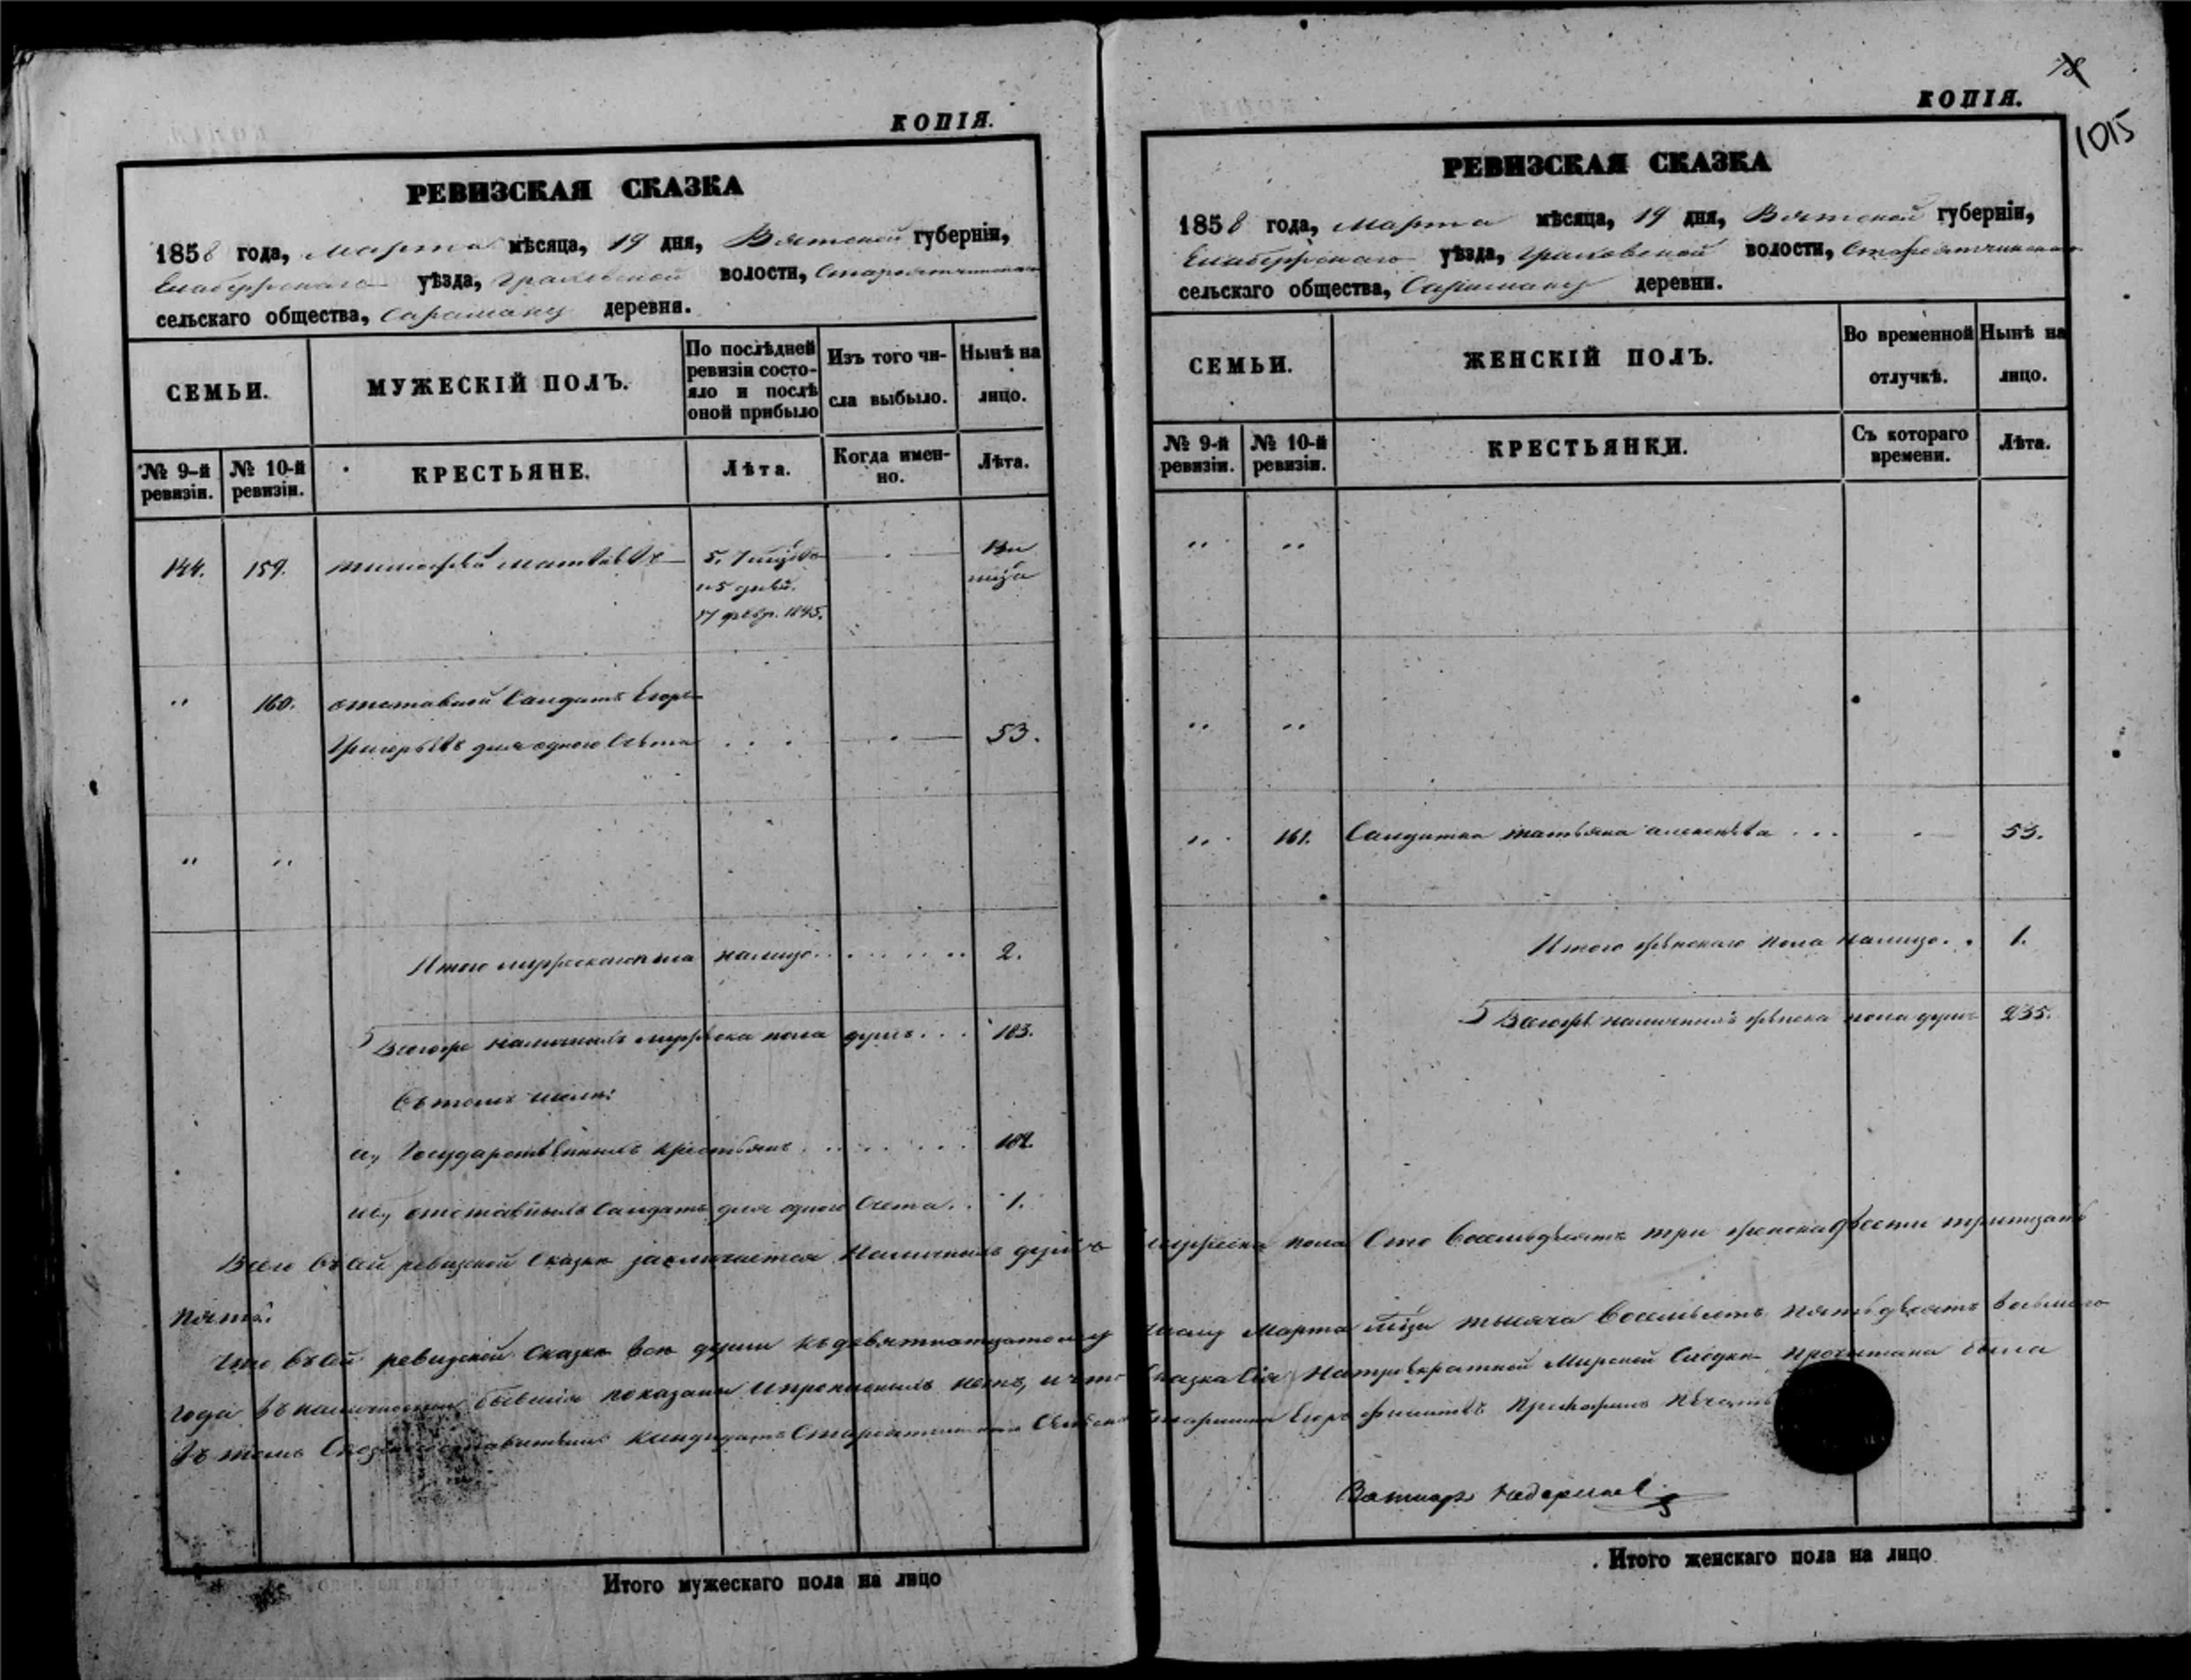 КОПІЯ.
РЕВИЗСКАЯ СКАЗКА
1858 года, марта мѣсяца, 19 дня, Вятской губерніи,
Елабужскаго уѣзда, Граховской волости, Староятчинскаго
сельскаго общества, Сарамаку деревни.
СЕМЬИ.
МУЖЕСКІЙ ПОЛЪ.
По послѣдней ревизіи состояло и послѣ оной прибыло
Изъ того числа выбыло.
Нынѣ на лицо.
№ 9-й ревизіи.
№ 10-й ревизіи.
КРЕСТЬЯНЕ.
Лѣта.
Когда именно.
Лѣта.
144. 159. Тимофей Матвѣевъ
и 5 дней.
17 февр. 1845.
" 160. отставной Салдатъ Егоръ
Григорьевъ для одного Счета . . . 53.
" "
Итого мужескаго пола налицо . . . . . . . 2.
Всегоже наличныхъ мужеска пола душъ . . . 183.
Въ томъ числѣ:
а, Государственныхъ крестьянъ . . . . . . . 182.
и б, отставныхъ Салдатъ для одного Счета . . 1.
Итого мужескаго пола на лицо
78
КОПІЯ.
1015
РЕВИЗСКАЯ СКАЗКА
1858 года, марта мѣсяца, 19 дня, Вятской губерніи,
Елабужскаго уѣзда, Граховской волости, Староятчинскаго
сельскаго общества, Сарамаку деревни.
СЕМЬИ.
ЖЕНСКІЙ ПОЛЪ.
Во временной отлучкѣ.
Нынѣ на лицо.
№ 9-й ревизіи.
№ 10-й ревизіи.
КРЕСТЬЯНКИ.
Съ котораго времени.
Лѣта.
" "
" "
" 161. Салдатка Татьяна Алексѣева . . . 53.
Итого женскаго пола налицо . . 1.
Всегоже наличныхъ женска пола душъ 235.
Всего въ сей ревизской Сказкѣ заключается Наличныхъ душъ мужеска пола Сто восемьдесятъ три женска двести тритцать
пять.
Что въ сей ревизской Сказкѣ всѣ души къ девятнатцатому числу Марта мѣсяца тысяча восемьсотъ пятьдесятъ восьмаго
года въ наличности бывшія показаны и прописныхъ нетъ, и что Сказка Сія на трехкратной Мирской Сходке прочитана была
Въ томъ Кандидатъ Староятчинскаго Старшина Егоръ печать
Итого женскаго пола на лицо